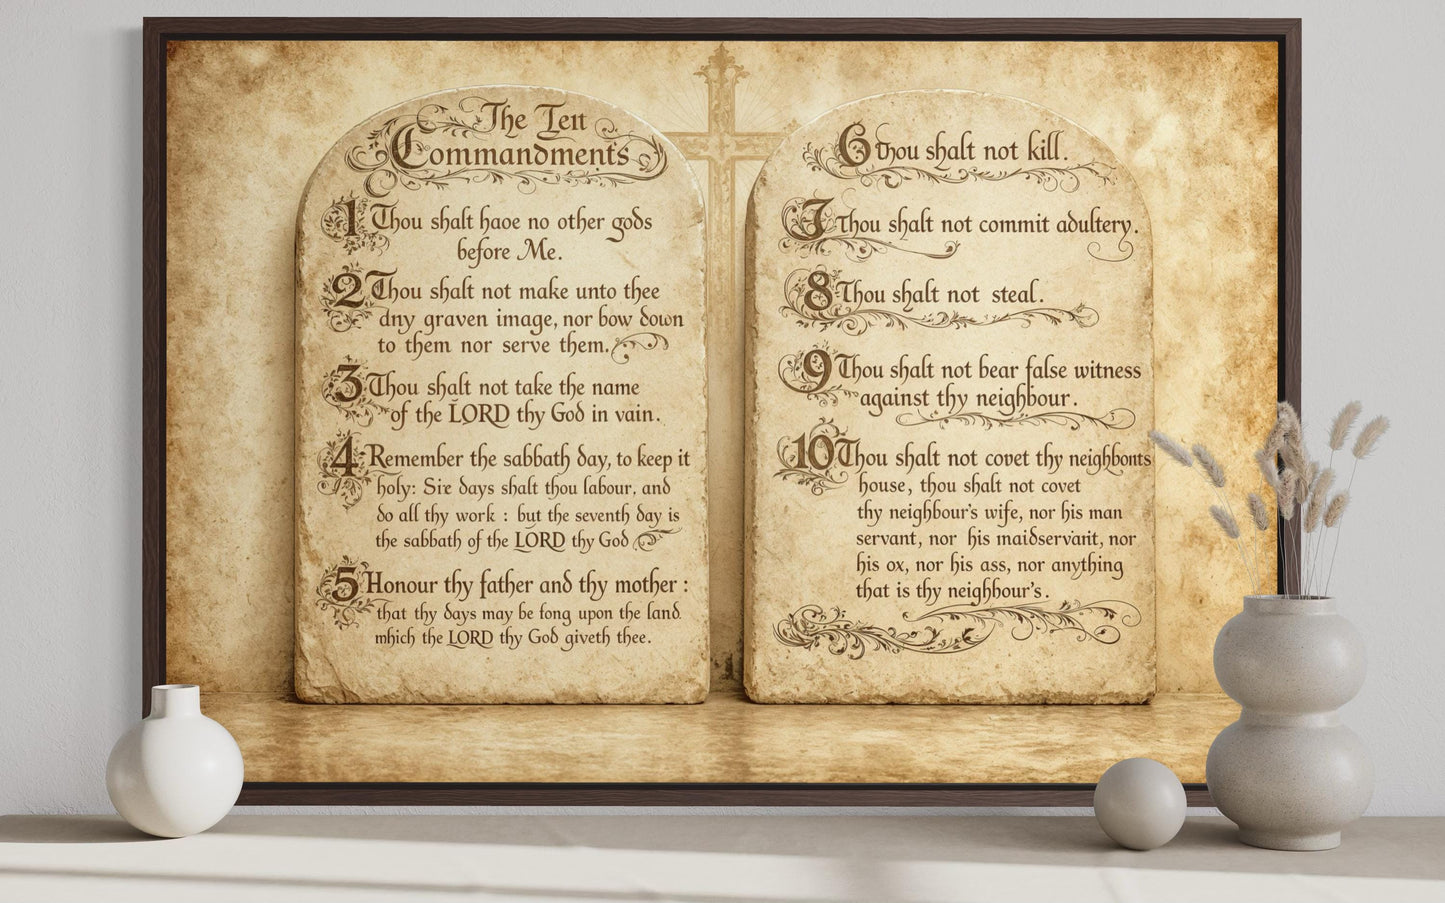 The Ten
Commandments
1 Thou shalt haoe no other gods
before Me.
2 Thou shalt not make unto thee
any graven image, nor bow down
to them nor serve them.
3 Thou shalt not take the name
of the LORD thy God in vain.
4 Remember the sabbath day, to keep it
holy: Sire days shalt thou labour, and
do all thy work : but the seventh day is
the sabbath of the LORD thy God
5 Honour thy father and thy mother :
that thy days may be fong upon the land.
mhich the LORD thy God giveth thee.
6 Thou shalt not kill.
7 Thou shalt not commit adultery.
8 Thou shalt not steal.
9 Thou shalt not bear false witness
against thy neighbour.
10 Thou shalt not covet thy neighbonts
house, thou shalt not covet
thy neighbour's wife, nor his man
servant, nor his maidservant, nor
his ox, nor his ass, nor anything
that is thy neighbour's.